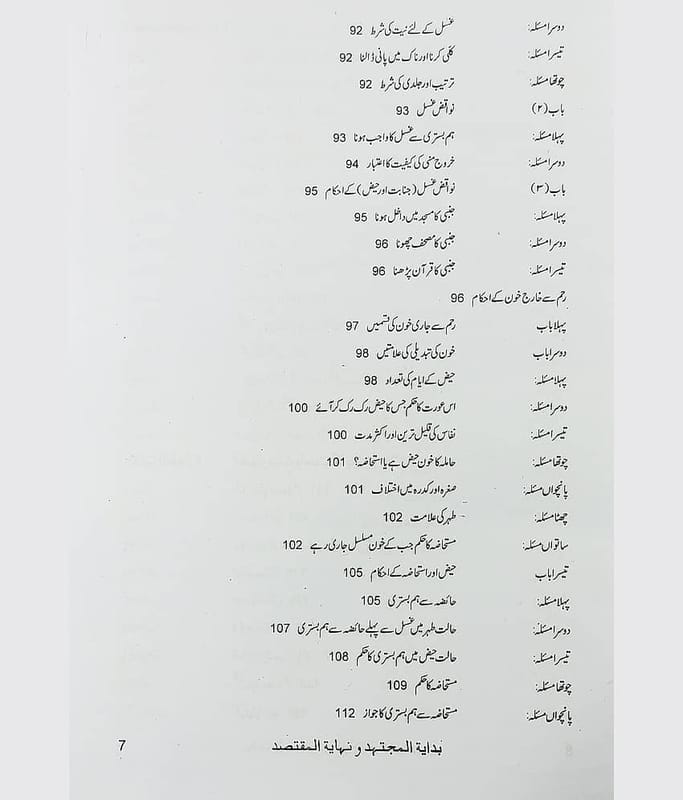 دوسرا مسئلہ: غسل کے لئے نیت کی شرط 92
تیسرا مسئلہ: کلی کرنا اور ناک میں پانی ڈالنا 92
چوتھا مسئلہ: ترتیب اور جلدی کی شرط 92
باب (۲) نواقض غسل 93
پہلا مسئلہ: ہم بستری سے غسل کا واجب ہونا 93
دوسرا مسئلہ: خروج منی کی کیفیت کا اعتبار 94
باب (۳) نواقض غسل (جنابت اور حیض) کے احکام 95
پہلا مسئلہ: جنبی کا مسجد میں داخل ہونا 95
دوسرا مسئلہ: جنبی کا مصحف چھونا 96
تیسرا مسئلہ: جنبی کا قرآن پڑھنا 96
رحم سے خارج خون کے احکام 96
پہلا باب رحم سے جاری خون کی قسمیں 97
دوسرا باب خون کی تبدیلی کی علامتیں 98
پہلا مسئلہ: حیض کے ایام کی تعداد 98
دوسرا مسئلہ: اس عورت کا حکم جس کا حیض رک رک کر آئے 100
تیسرا مسئلہ: نفاس کی قلیل ترین اور اکثر مدت 100
چوتھا مسئلہ: حاملہ کا خون حیض ہے یا استحاضہ؟ 101
پانچواں مسئلہ: صفرہ اور کدرہ میں اختلاف 101
چھٹا مسئلہ: طہر کی علامت 102
ساتواں مسئلہ: مستحاضہ کا حکم جب کے خون مسلسل جاری رہے 102
تیسرا باب حیض اور استحاضہ کے احکام 105
پہلا مسئلہ: حائضہ سے ہم بستری 105
دوسرا مسئلہ: حالت طہر میں غسل سے پہلے حائضہ سے ہم بستری 107
تیسرا مسئلہ: حالت حیض میں ہم بستری کا حکم 108
چوتھا مسئلہ: مستحاضہ کا حکم 109
پانچواں مسئلہ: مستحاضہ سے ہم بستری کا جواز 112
بداية المجتهد و نهاية المقتصد 7